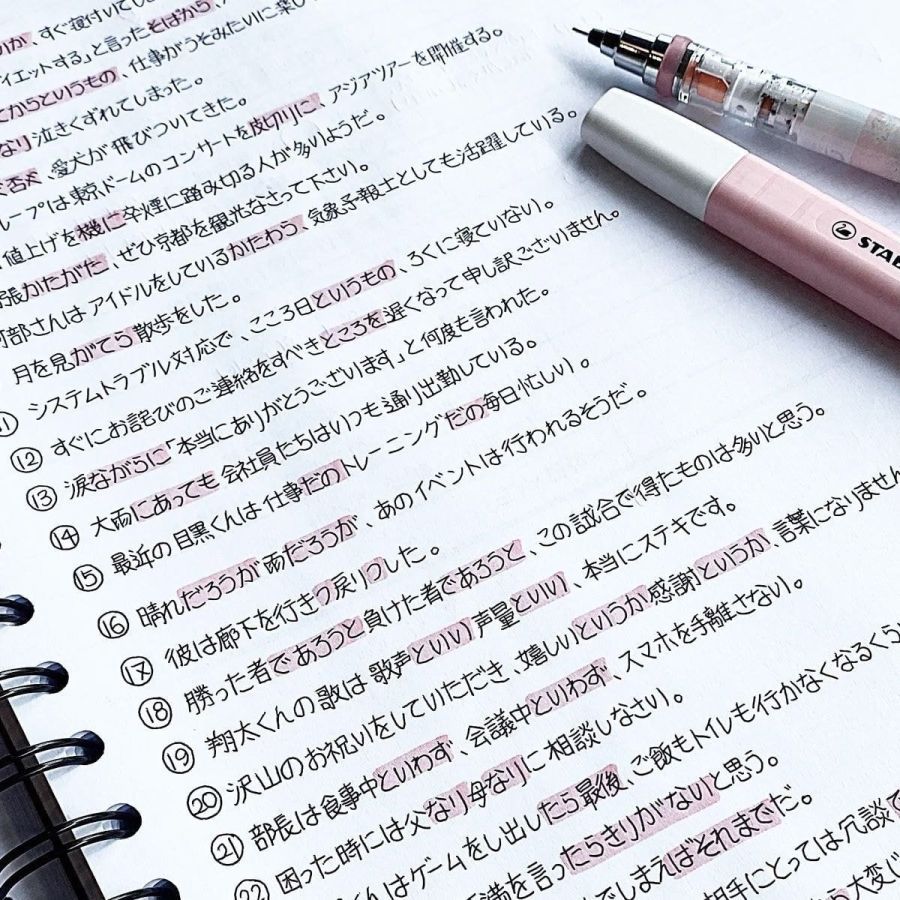 が、すぐ寝付いてし
イエットする」と言ったそばから、
てからというもの、仕事がうそみたいに楽し
なり泣きくずれてしまった。
否や、愛犬が飛びついてきた。
ループは東京ドームのコンサートを皮切りに、アジアツアーを開催する。
値上げを機に卒煙に踏み切る人が多いようだ。
張かたがた、ぜひ京都を観光なさって下さい。
阿部さんはアイドルをしているかたわら、気象予報士としても活躍している。
月を見がてら散歩をした。
⑪ システムトラブル対応で、ここ3日というもの、ろくに寝ていない。
⑫ すぐにお詫びのご連絡をすべきところを遅くなって申し訳ございません。
⑬ 涙ながらに「本当にありがとうございます」と何度も言われた。
⑭ 大雨にあっても会社員たちはいつも通り出勤している。
⑮ 最近の目黒くんは仕事だのトレーニングだの毎日忙しい。
⑯ 晴れだろうが雨だろうが、あのイベントは行われるそうだ。
⑰ 彼は廊下を行きつ戻りつした。
⑱ 勝った者であろうと負けた者であろうと、この試合で得たものは多いと思う。
⑲ 翔太くんの歌は歌声といい声量といい、本当にステキです。
⑳ 沢山のお祝いをしていただき、嬉しいというか感謝というか、言葉になりません
㉑ 部長は食事中といわず、会議中といわず、スマホを手離さない。
㉒ 困った時には父なり母なりに相談しなさい。
くんはゲームをし出したら最後、ご飯もトイレも行かなくなるくら
満を言ったらきりがないと思う。
でしまえばそれまでだ。
相手にとっては冗談で
大変じ
STAB